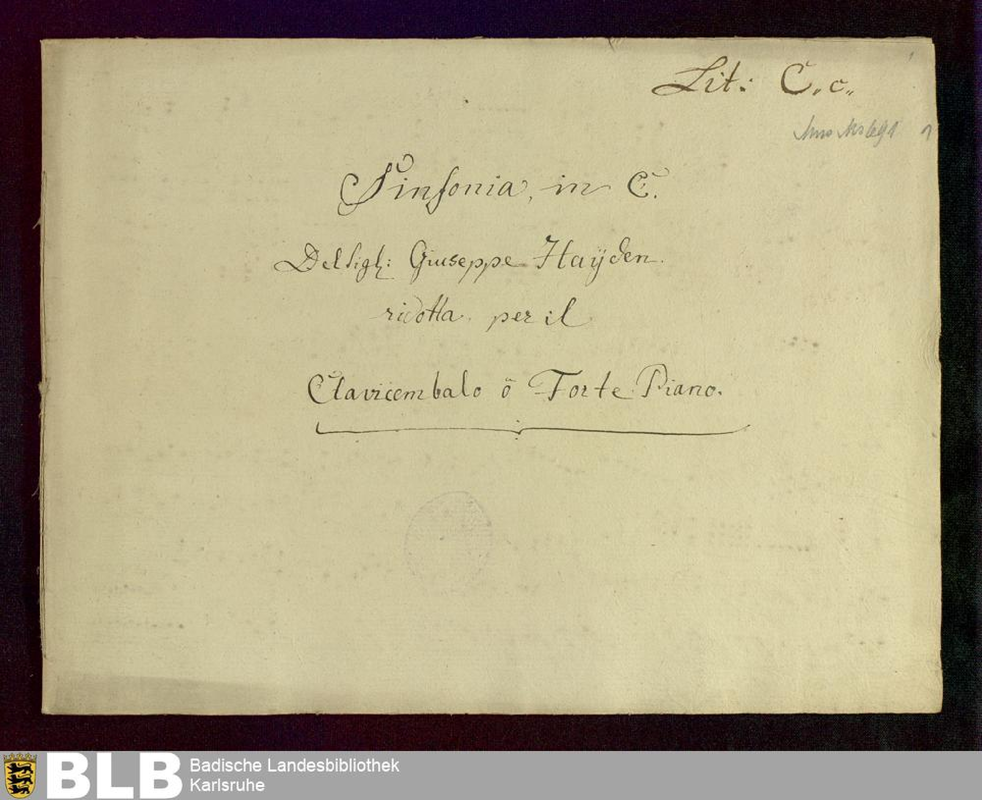 Lit: C. c.
Mus. Ms. 691 1
Sinfonia, in C.
Del Sigl: Giuseppe Haÿden.
ridotta per il
Clavicembalo ò Forte Piano.
BLB Badische Landesbibliothek
Karlsruhe